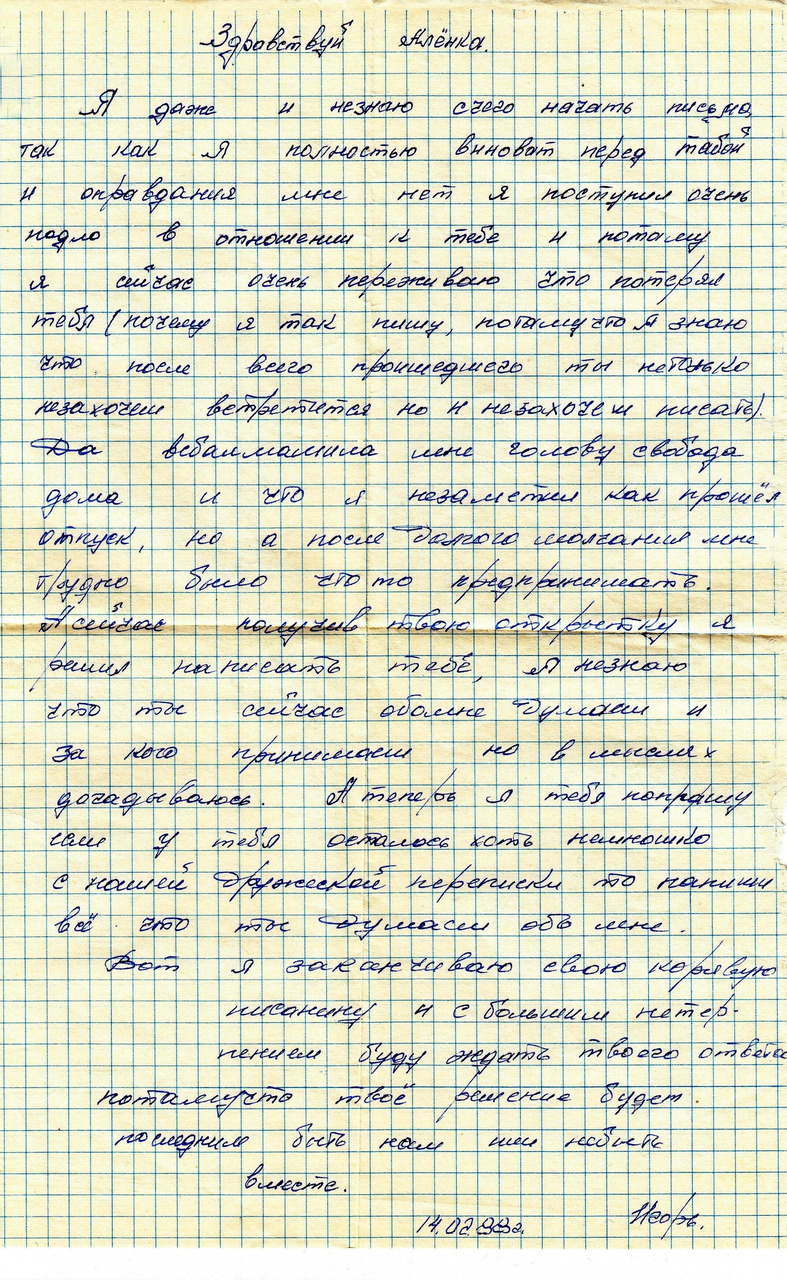 Здравствуй Алёнка.
Я даже и незнаю счего начать письмо,
так как я полностью виноват перед табой
и оправдания мне нет я поступил очень
подло в отношении к тебе и потаму
я сийчас очень переживаю что потерял
тебя (почему я так пишу, потамучто я знаю
что после всего проишедшего ты нетолько
незахочеш встретится но и незахочеш писать).
Да взбалмашила мне голову свобода
дома и что я незаметил как прошёл
отпуск, но а после долгого молчания мне
трудно было что то предпринимать.
А сийчас получив твою открытку я
решил написать тебе, я незнаю
что ты сийчас обомне думаеш и
за кого принимаеш но в мыслях
догадываюсь. А теперь я тебя попрашу
если у тебя осталось хоть немношко
с нашей дружеской переписки то напиши
всё что ты думаеш объ мне.
Вот я заканчиваю свою корявую
писанину и с большим нетер-
пением буду ждать твоего ответа
потамушто твоё решение будет
последним быть нам или небыть
вместе.
14.02 Игорь.